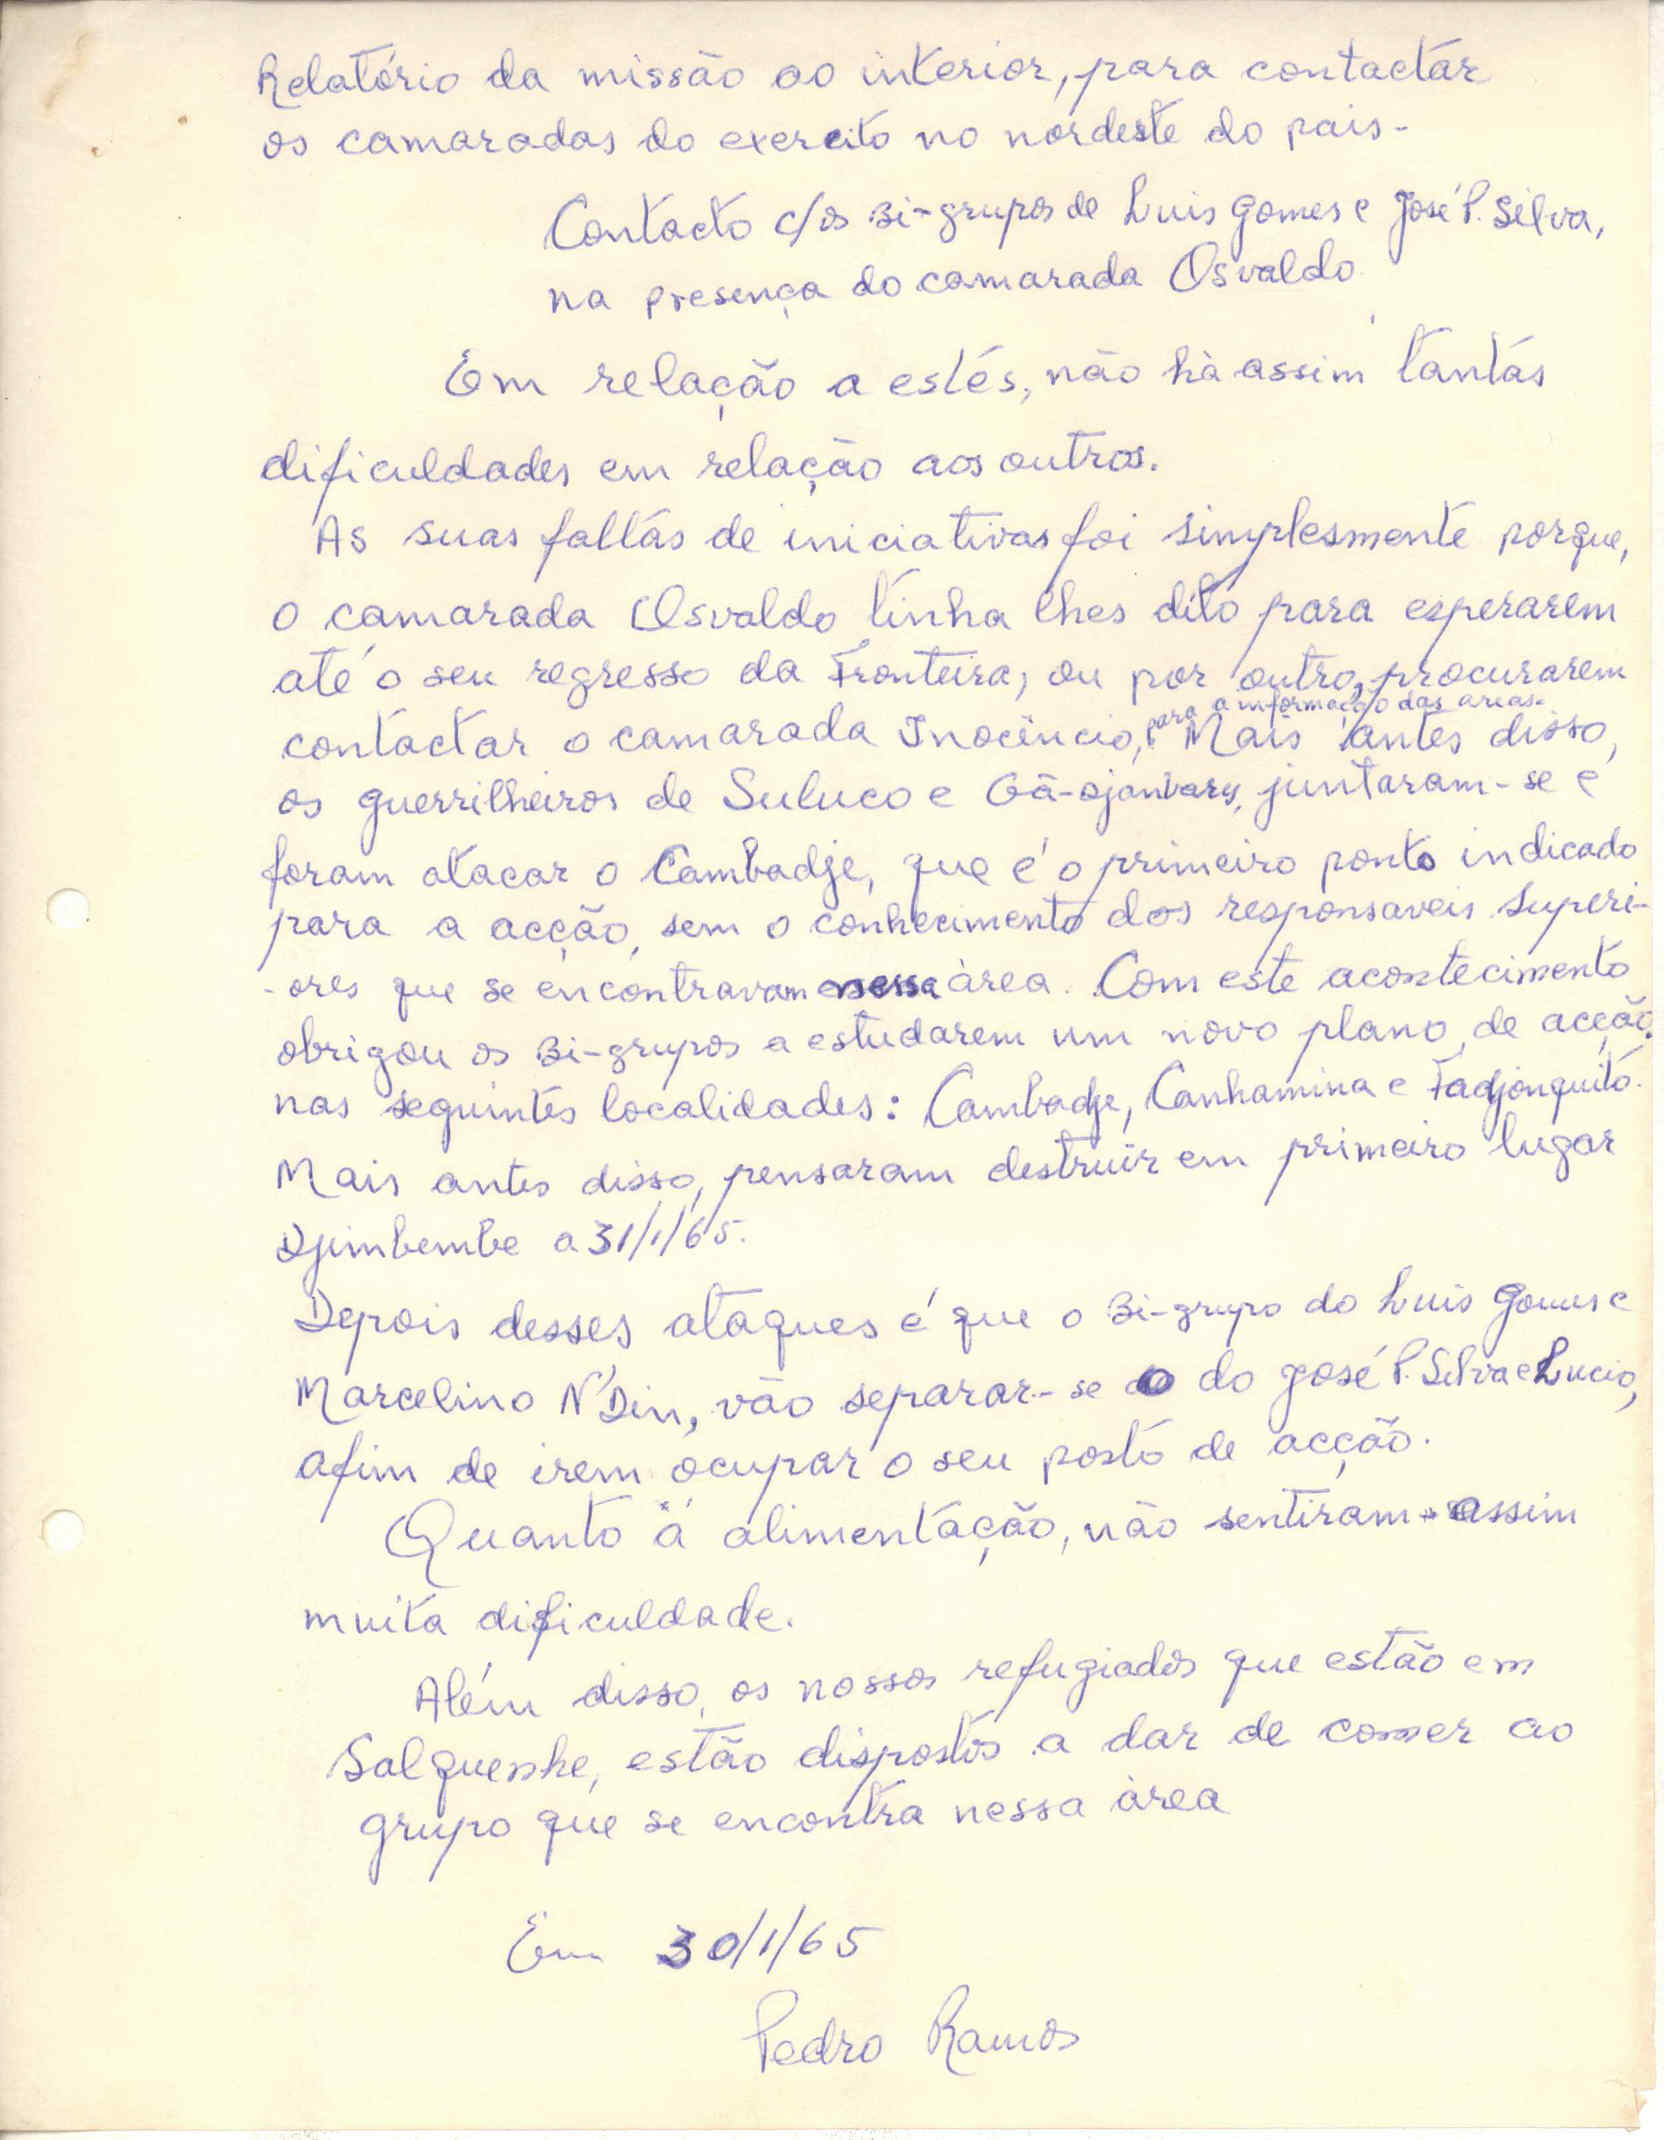 Relatório da missão ao interior, para contactar
os camaradas do exercito no nordeste do pais-
Contacto c/os Bi-grupos de Luis Gomes e José P. Silva,
na presença do camarada Osvaldo
Em relação a estes, não hà assim tantas
dificuldades em relação aos outros.
As suas faltas de iniciativas foi simplesmente porque,
o camarada Osvaldo tinha lhes dito para esperarem
até o seu regresso da Fronteira, ou por outro, procurarem
para a informação das areas.
contactar o camarada Inocêncio, Mais antes disso,
os guerrilheiros de Suluco e juntaram-se e
foram atacar o Cambadje, que é o primeiro ponto indicado
para a acção, sem o conhecimento dos responsaveis superi-
-ores que se encontravam nessa àrea. Com este acontecimento
obrigou os Bi-grupos a estudarem um novo plano, de acção
nas seguintes localidades: Cambadje, Canhamina e Fadjonquito.
Mais antes disso, pensaram destruir em primeiro lugar
Djimbembe a 31/1/65.
Depois desses ataques é que o Bi-grupo do Luis Gomes e
Marcelino N'Din, vão separar-se do José P. Silva e Lucio,
afim de irem ocupar o seu posto de acção.
Quanto à alimentação, não sentiram assim
muita dificuldade.
Além disso, os nossos refugiados que estão em
Salquenhe, estão dispostos a dar de comer ao
grupo que se encontra nessa àrea
Em 30/1/65
Pedro Ramos